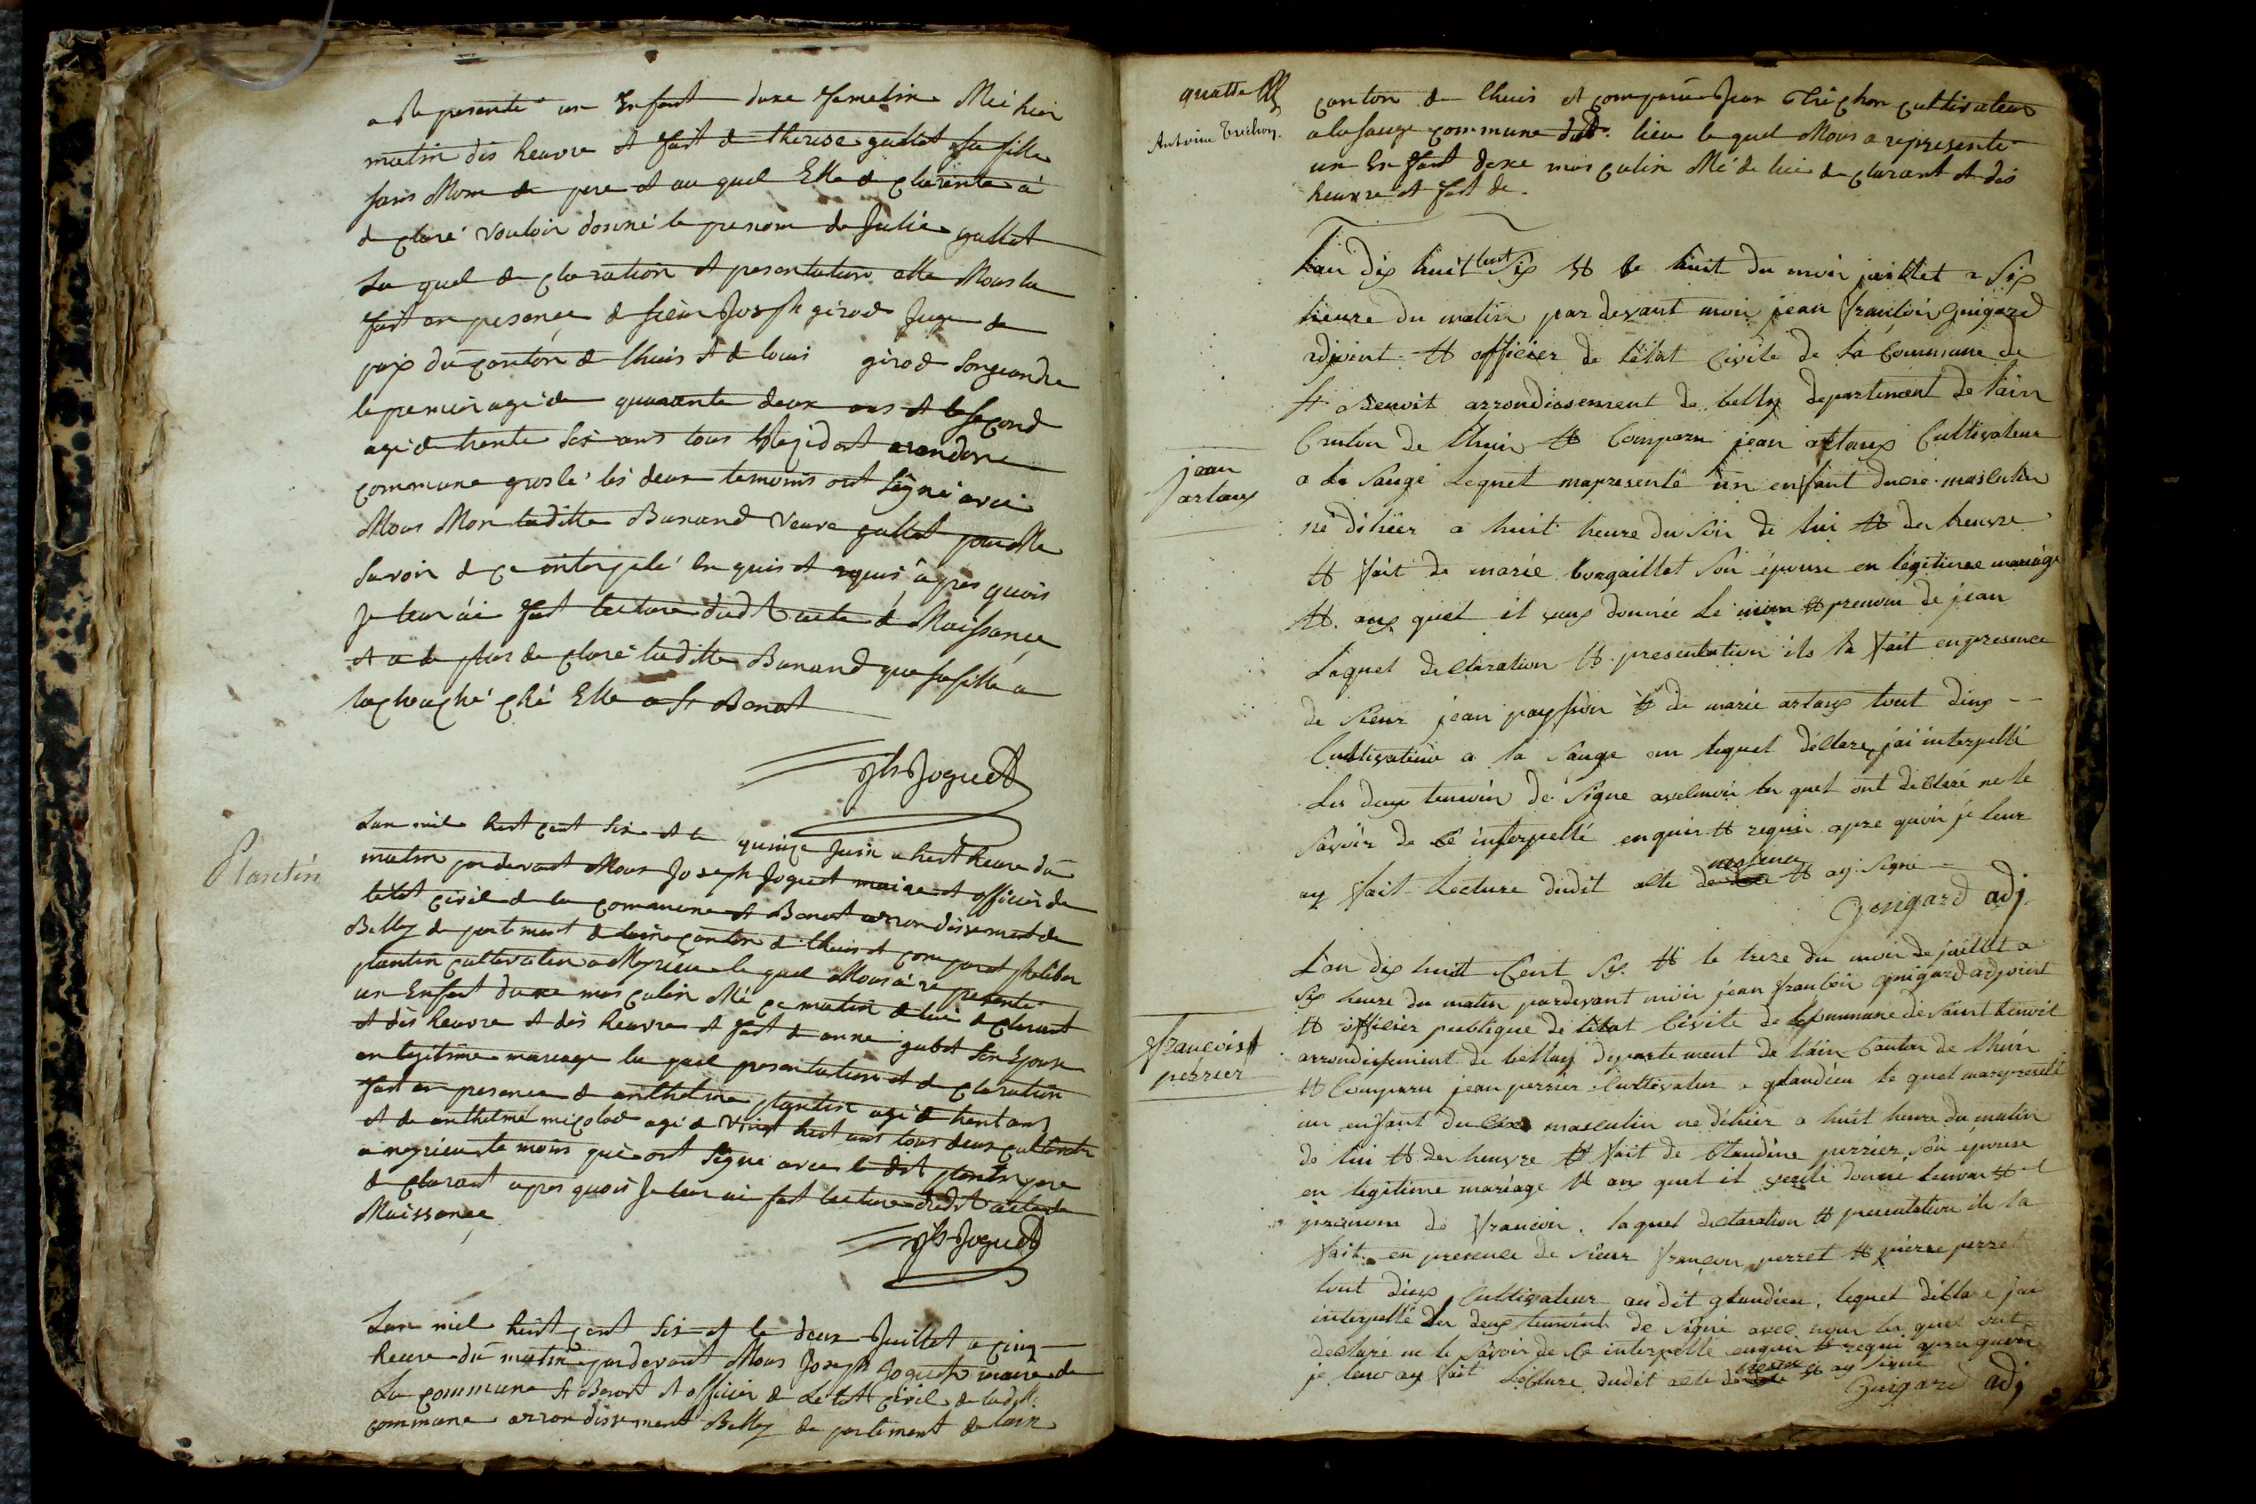 a Represente un Enfant dexe femelin Mé hier
matin des heuvre et fait de therese gallet sa fille
sans Mom de pere et au quel Elle de clarente à
de claré vouloir donné le prenom de Julie gallet
La quel de claration et presentation elle Mous la
fait en presence de sieur Joseph girod Juge de
paix du canton de lhuis et de louis girod
le premier agé de quarante deux ans et le second
agé de trente six ans tous
commune groslé les deux temoins ont signé avec
Mous Mon laditte Bunand veuve gallet pour Me
savoir de ce enterpelé en quis et requis apres quois
Je leur ai fait lecture dudt acte de Maissance
et a de plus de claré laditte Bunand que sa fille a
ché Elle a St Benoit
Jh Joguet
Plantin
Lan mil huit cent six et le quinze Juin a huit heure du
matin par devant Mous Joseph Joguet maire et officier de
letat civil de la commune St Benoit arron dissement de
Belley de partement de lain canton de lhuis et comparet philiber
plantin cultivateur a Meyrieu le quel Mous a re presente
un Enfant dexe mas culin Mé ce matin de lui de clarant
et des heuvre et des heuvre et fait de anne gubet son Epouse
en legitime mareage la quel presentation et de claration
fait en presence de anthelme plantin agé de trent ans
et de anthelme micolod agé de vingt huit ans tous deux cultivateur
a meyrieu te moins qui ont signé avec le dit plantin pere
de clarant apres quois Je leur ai fait lecture dudt acte de
Maissance
Jh Joguet
Lan mil huit cent six et le deux Juillet a cinq
heure du matin par devant Mous Joseph Joguet maire de
La commune St Benoit et officier de Letat civil de ladt.
commune arron dissement Belley de partement de lain
quatre
Antoine Trichon.
canton de lhuis et comparu Jean Thrichon cultivateur
a la sauge commune dudt. lieu le quel Mous a represente
un Enfant dexe mas culin Mé de lui de clarant et des
heuvre et fait de
Lan dix huit cent six et le huit du mois juillet a six
heure du matin par devant moi jean francois Guigard
adjoint et officier de letat civile de la Commune de
St Benoit arrondissement de belley departement de lain
Canton de lhuis et Comparu jean artaux Cultivateur
jean
artaux
a la Sauge Lequel mapresenté un enfant dusexe masculin
né dihier a huit heure du soir de lui et des heuvre
et fait de marie bougaillet son épouse en légitime mariage
et aux quel il veux donnée le nom et prenom de jean
Laquel declaration et presentation ils la fait en presence
de sieur jean paysson et de marie artaux tout deux
Cultivateur a la Sauge lequel déclare jai interpellé
Les deux temoin de signe avec moi les quel ont déclaré ne le
savoir de ce interpellé enquis et requis apre quoi je leur
ay fait Lecture dudit acte de nesance et ay signé
Guigard adj
L'an dix huit Cent six et le treze du mois de juillet a
six heure du matin pardevant moi jean francois Guigard adjoint
et officier publique de létat Civile de la Commune de Saint benoit
françois
perrier
arrondissement de belley departement de lain Canton de lhuis
et Comparu jean perrier Cultivateur a glandieu le quel marepresenté
un enfant du sexe masculin ne déhier a huit heure du matin
de lui et des heuvre et fait de Claudine perrier son epouse
en legitime mariage et aux quel il veule donné lenom et
prenom de francois. laquel declaration et presentation ils la
fait en presence de sieur françois perret et pierre perret
tout deux Cultivateur au dit glandieu, lequel déclare jai
interpellé Les deux temoint de signé avec nous les quel ont
declaré ne le savoir de Ce interpellé enquis et requi apre quoi
je leur ay fait lecture dudit acte de nesance et ay signé
Guigard adj